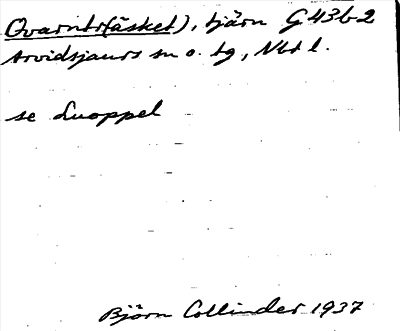 Qvarnträsket), tjärn G 43b2
Arvidsjaurs sn o. tg, Nbt l.
se Luoppel
Björn Collinder 1937